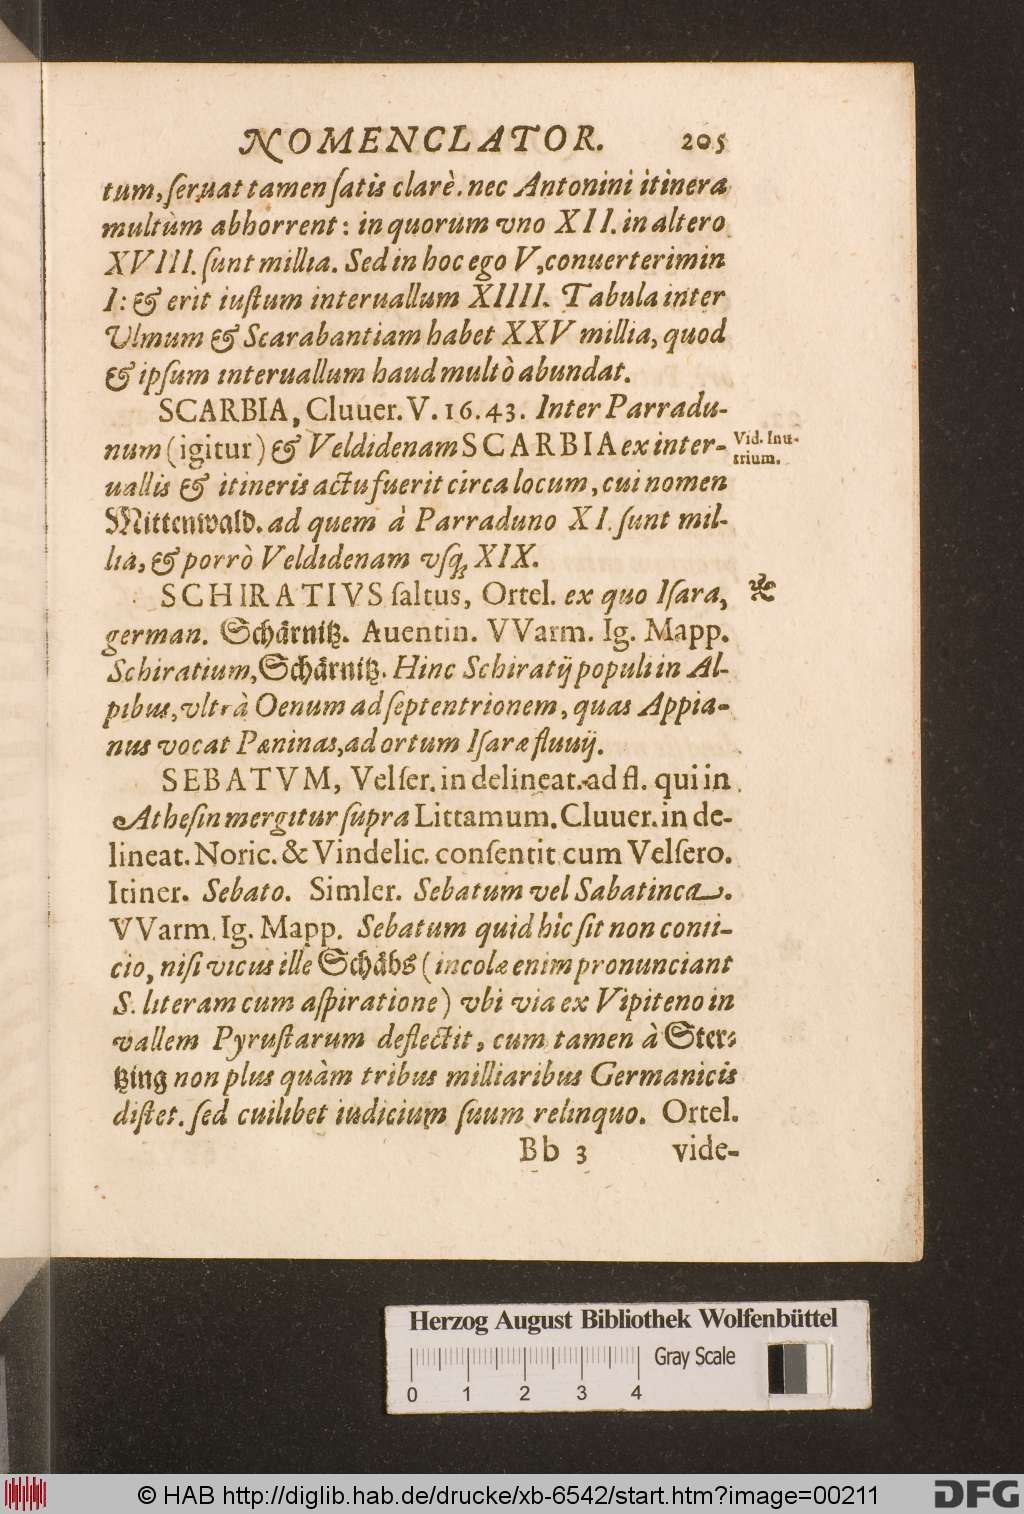 NOMENCLATOR. 205
tum, ſeruat tamen ſatis clarè. nec Antonini itinera
multùm abhorrent: in quorum vno XII. in altero
XVIII. ſunt millia. Sed in hoc ego V, conuerterim in
I: & erit iuſtum interuallum XIIII. Tabula inter
Vlmum & Scarabantiam habet XXV millia, quod
& ipſum interuallum haud multò abundat.
SCARBIA, Cluuer. V. 16. 43. Inter Parradu-
num (igitur) & Veldidenam SCARBIA ex inter-
Vid. Inu-
trium.
uallis & itineris actu fuerit circa locum, cui nomen
Mittenwald. ad quem à Parraduno XI. ſunt mil-
lia, & porrò Veldidenam vſq; XIX.
SCHIRATIVS ſaltus, Ortel. ex quo Iſara,
german. Schärnitz. Auentin. VVarm. Ig. Mapp.
Schiratium, Schärnitz. Hinc Schiratij populi in Al-
pibus, vltrà Oenum ad ſeptentrionem, quas Appia-
nus vocat Pæninas, ad ortum Iſaræ fluuij.
SEBATVM, Velſer. in delineat. ad fl. qui in
Atheſin mergitur ſupra Littamum. Cluuer. in de-
lineat. Noric. & Vindelic. conſentit cum Velſero.
Itiner. Sebato. Simler. Sebatum vel Sabatinca.
VVarm. Ig. Mapp. Sebatum quid hîc ſit non conii-
cio, niſi vicus ille Schäbs (incolæ enim pronunciant
S. literam cum aſpiratione) vbi via ex Vipiteno in
vallem Pyruſtarum deflectit, cum tamen à Ster-
tzing non plus quàm tribus milliaribus Germanicis
diſtet. ſed cuilibet iudicium ſuum relinquo. Ortel.
Bb 3 vide-
Herzog August Bibliothek Wolfenbüttel
Gray Scale
0 1 2 3 4
© HAB http://diglib.hab.de/drucke/xb-6542/start.htm?image=00211
DFG